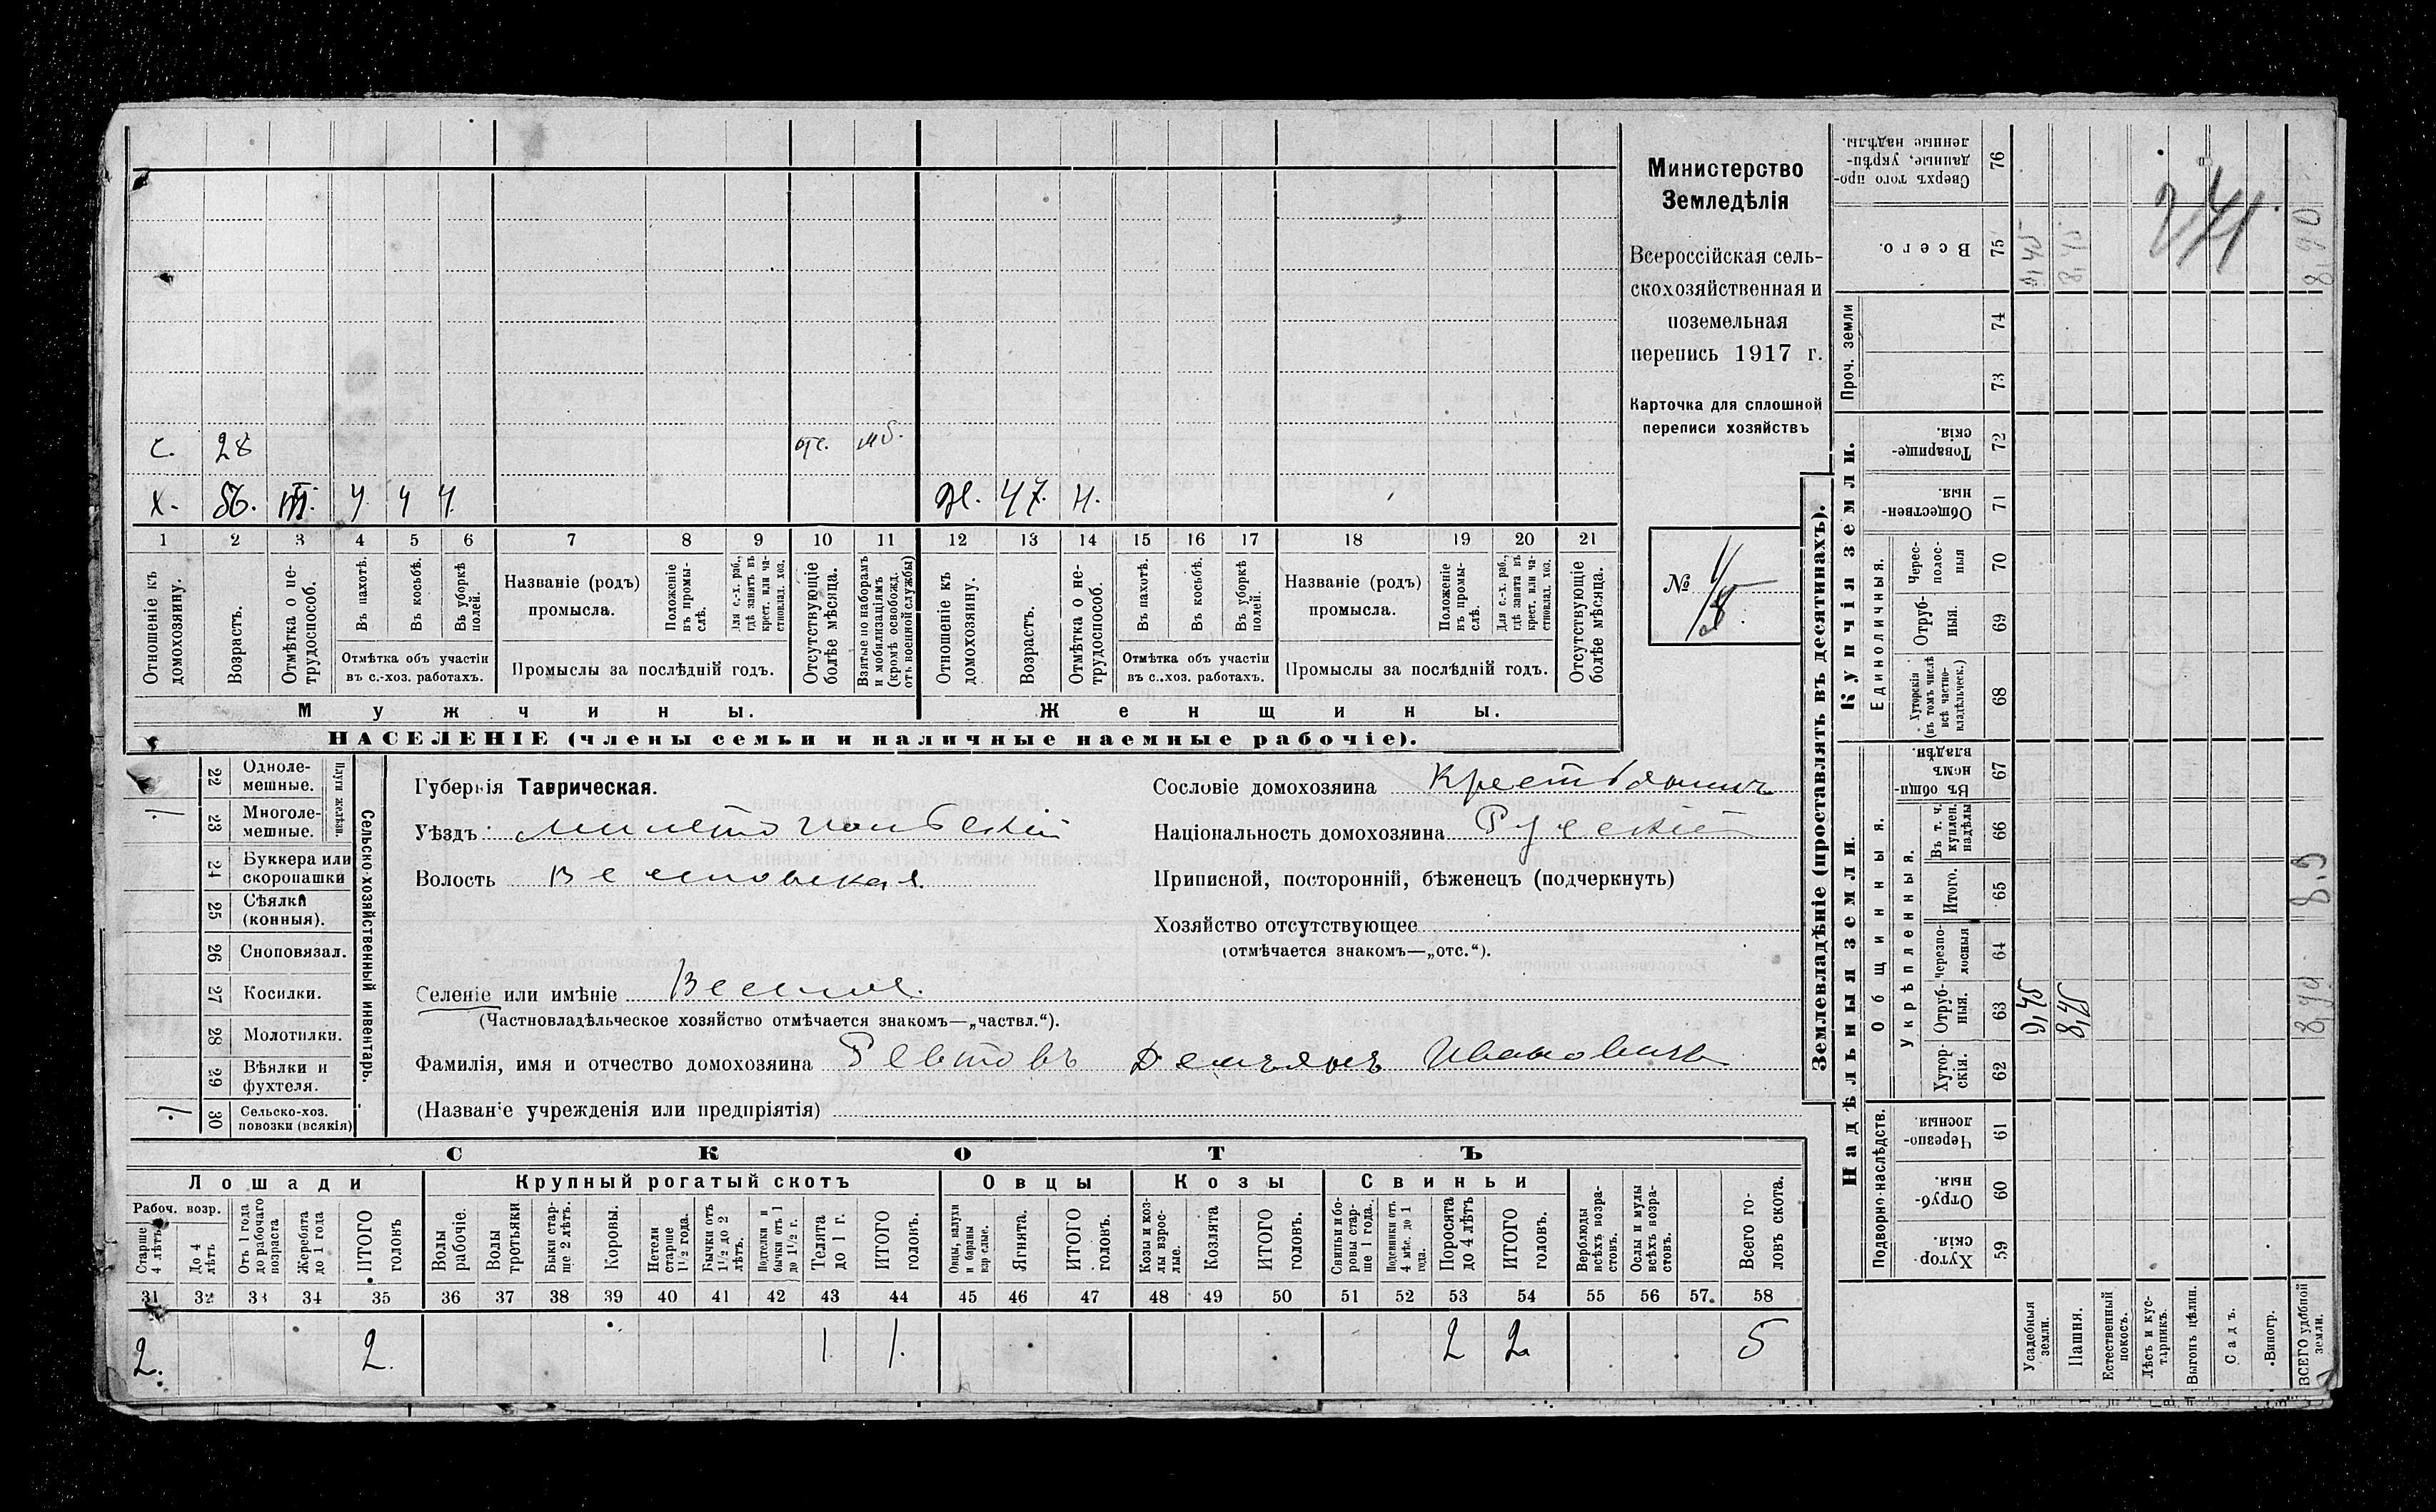 Министерство
Земледѣлія
Всероссійская сель-
скохозяйственная и
поземельная
перепись 1917 г.
Карточка для сплошной
переписи хозяйствъ
№
с. 28 отс. мб.
х. 56. III. ч ч ч Ж. 47. н.
1 2 3 4 5 6 7 8 9 10 11 12 13 14 15 16 17 18 19 20 21
Отношеніе къ домохозяину.
Возрастъ.
Отмѣтка о не-трудоспособ.
Въ пахотѣ.
Въ косьбѣ.
Въ уборкѣ полей.
Отмѣтка объ участіи
въ с.-хоз. работахъ.
Названіе (родъ)
промысла.
Положеніе въ промы-слѣ.
Для с.-х. раб., гдѣ занятъ въ крест. или ча-стновлад. хоз.
Промыслы за послѣдній годъ.
Отсутствующіе болѣе мѣсяца.
Взятые по наборамъ и мобилизаціямъ (кромѣ освобожд. отъ военной службы)
Отношеніе къ домохозяину.
Возрастъ.
Отмѣтка о не-трудоспособ.
Въ пахотѣ.
Въ косьбѣ.
Въ уборкѣ полей.
Отмѣтка объ участіи
въ с..хоз. работахъ.
Названіе (родъ)
промысла.
Положеніе въ промы-слѣ.
Для с.-х. раб., гдѣ занятъ въ крест. или ча-стновлад. хоз.
Промыслы за послѣдній годъ.
Отсутствующіе болѣе мѣсяца.
Мужчины.
Женщины.
НАСЕЛЕНІЕ (члены семьи и наличные наемные рабочіе).
22 Одноле-мешные.
23 Многоле-мешные.
Плуги желѣзн.
24 Буккера или скоропашки
25 Сѣялки (конныя).
26 Сноповязал.
27 Косилки.
28 Молотилки.
29 Вѣялки и фухтеля.
30 Сельско-хоз. повозки (всякія)
Сельско-хозяйственный инвентарь.
Губернія Таврическая.
Уѣздъ Мелитопольскій
Волость Веселовская.
Селеніе или имѣніе Веселое.
(Частновладѣльческое хозяйство отмѣчается знакомъ—„частвл.“).
Сословіе домохозяина Крестьянинъ
Національность домохозяина Русскій
Приписной, посторонній, бѣженецъ (подчеркнуть)
Хозяйство отсутствующее
(отмѣчается знакомъ—„отс.“).
Фамилія, имя и отчество домохозяина Ревтовъ Демьянъ Ивановичъ
(Названіе учрежденія или предпріятія)
СКОТЪ
Лошади
Крупный рогатый скотъ
Овцы
Козы
Свиньи
Рабоч. возр.
Старше 4 лѣтъ
До 4 лѣтъ
Отъ 1 года до рабочаго возраста
Жеребята до 1 года
ИТОГО головъ
Волы рабочіе.
Волы третьяки
Быки стар-ше 2 лѣтъ.
Коровы.
Нетели старше 1½ года.
Бычки отъ 1½ до 2 лѣтъ.
Подтелки и бычки отъ 1 до 1½ г.
Телята до 1 г.
ИТОГО головъ.
Овцы, валухи и бараны взрослые.
Ягнята.
ИТОГО головъ.
Козы и коз-лы взрос-лые.
Козлята
ИТОГО головъ.
Свиньи и бо-ровы стар-ше 1 года.
Подсвинки отъ 4 мѣс. до 1 года.
Поросята до 4 лѣтъ
ИТОГО головъ.
Верблюды всѣхъ возра-стовъ.
Ослы и мулы всѣхъ возра-стовъ.
Всего го-ловъ скота.
31 32 33 34 35 36 37 38 39 40 41 42 43 44 45 46 47 48 49 50 51 52 53 54 55 56 57. 58
2. 2. 1 1. 2 2 5
Землевладѣніе (проставлять въ десятинахъ).
Надѣльныя земли.
Купчія земли.
Проч. земли
Подворно-наслѣдств.
Общинныя.
Укрѣпленныя.
Единоличныя.
Сверхъ того про-данные, укрѣп-ленные надѣлы. 76
Всего. 75
74
73
Товарище-скія. 72
Обществен-ныя. 71
Черес-полос-ныя 70
Отруб-ныя. 69
Хуторскія (въ томъ числѣ всѣ частно-владѣльческ.) 68
Въ общи-номъ владѣн. 67
Въ т. ч. куплен. надѣлы 66
Итого. 65
Черезпо-лосныя 64
Отруб-ныя. 63
Хутор-скія. 62
Черезпо-лосныя 61
Отруб-ныя 60
Хутор-скія. 59
Усадебныя земли. 0,45
Пашня. 8,45
Естественный покосъ.
Лѣсъ и кус-тарникъ.
Выгонъ цѣлин.
Садъ.
Виногр.
ВСЕГО удобной земли. 8,90
241.